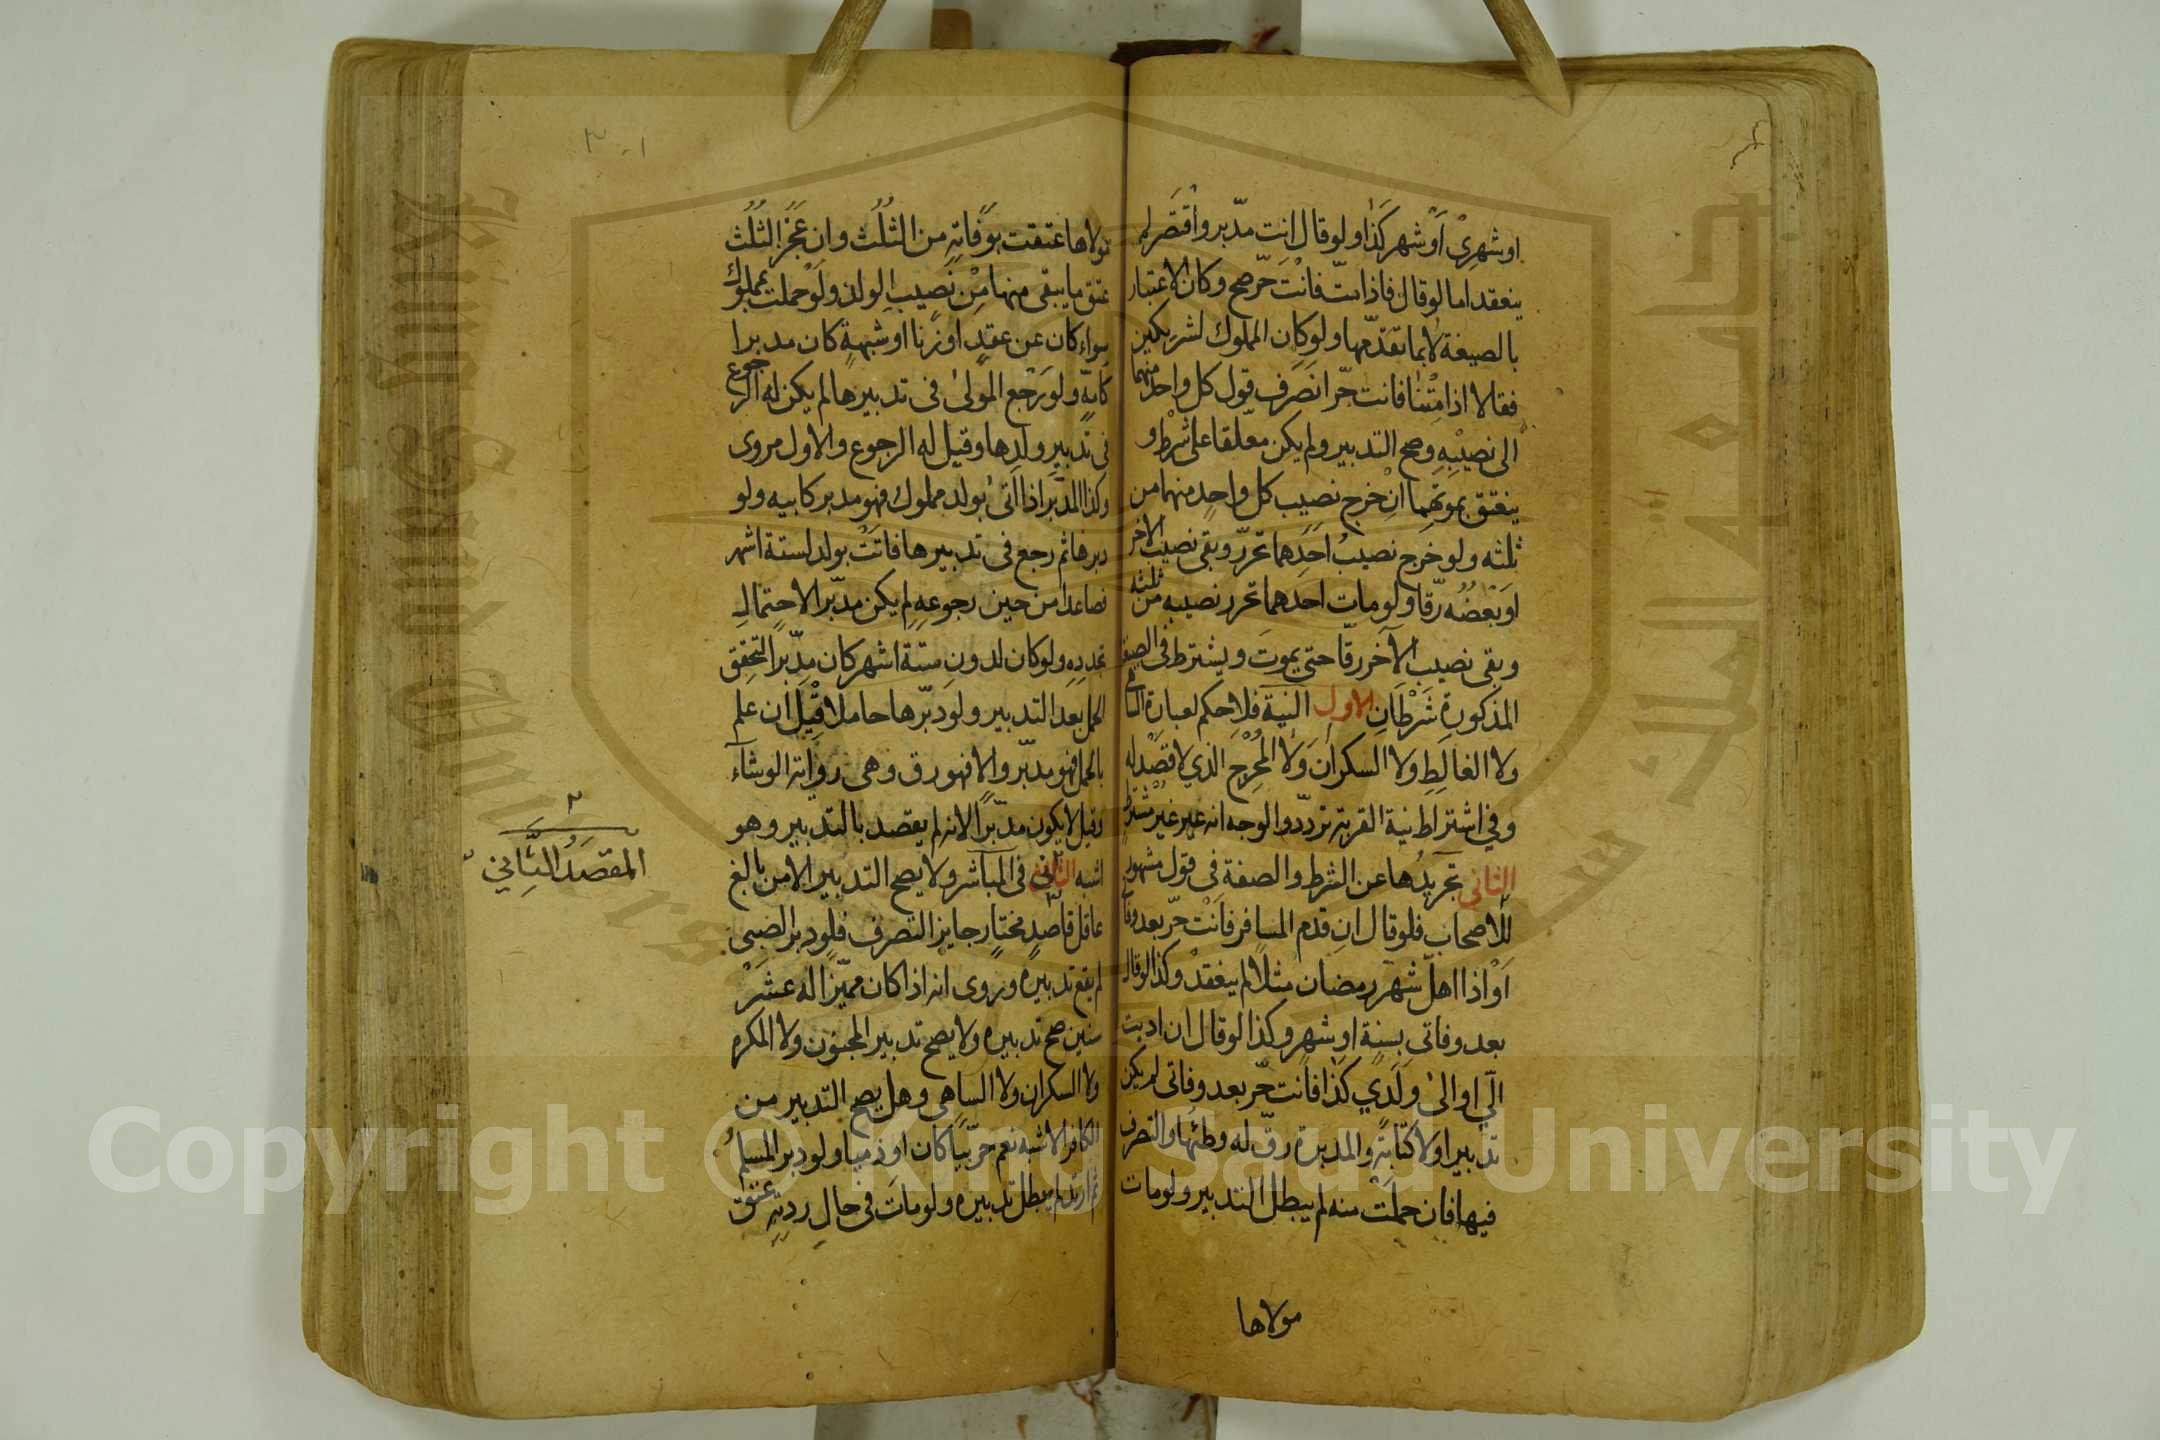 او شهرى او شهر كذا ولو قال انت مدبر واقتصر لم
ينعقد اما لو قال فاذا مت فانت حر صح وكان الاعتبار
بالصيغة لا بما تقدمها ولو كان المملوك لشريكين
فقالا اذا متنا فانت حر انصرف قول كل واحد منهما
الى نصيبه وصح التدبير ولم يكن معلقا على شرط و
ينعتق بموتهما ان خرج نصيب كل واحد منهما من
ثلثه ولو خرج نصيب احدهما تحرر وبقى نصيب الاخر
او بعضه رقا ولو مات احدهما تحرر نصيبه من ثلثه
وبقى نصيب الآخر رقا حتى يموت ويشترط فى الصيغة
المذكورة شرطان الاول النية فلا حكم لعبارة الساهى
ولا الغالط ولا السكران ولا المحرج الذي لا قصد له
وفي اشتراط نية القربة تردد والوجه انه غير غير مشترط
الثاني تجريدها عن الشرط والصفة فى قول مشهور
للاصحاب فلو قال ان قدم المسافر فانت حر بعد وفاتى
او اذا اهل شهر رمضان مثلا لم ينعقد وكذا لو قال
بعد وفاتى بسنة او شهر وكذا لو قال ان اديت
الي او الى ولدي كذا فانت حر بعد وفاتى لم يكن
تدبيرا ولا كتابة والمدبرة رق له وطئها والتصرف
فيها فان حملت منه لم يبطل التدبير ولو مات
مولاها
٣٠١
مولاها عتقت بوفاته من الثلث وان عجز الثلث
عتق ما يبقى منها من نصيب الولد ولو حملت بمملوك
سواء كان عن عقد او زنا او شبهة كان مدبرا
كامه ولو رجع المولى فى تدبيرها لم يكن له الرجوع
فى تدبير ولدها وقيل له الرجوع والاول مروى
وكذا المدبر اذا اتى بولد مملوك فهو مدبر كابيه ولو
دبرها ثم رجع فى تدبيرها فاتت بولد لستة اشهر
فصاعدا من حين رجوعه لم يكن مدبرا لاحتمال
تجدده ولو كان لدون ستة اشهر كان مدبرا لتحقق
الحمل بعد التدبير ولو دبرها حاملا قيل ان علم
بالحمل فهو مدبر والا فهو رق وهى رواية الوشاء
وقيل لا يكون مدبرا لانه لم يقصد بالتدبير وهو
اشبه الثانى فى المباشر ولا يصح التدبير الا من بالغ
عاقل قاصد مختار جايز التصرف فلو دبر الصبى
لم يقع تدبيره وروى انه اذا كان مميزا له عشر
سنين صح تدبيره ولا يصح تدبير المجنون ولا المكره
ولا السكران ولا الساهى وهل يصح التدبير من
الكافر الاشبه نعم حربيا كان او ذميا ولو دبر المسلم
ثم ارتد لم يبطل تدبيره ولو مات فى حال ردته عتق
المقصد الثاني
Copyright © King Saud University